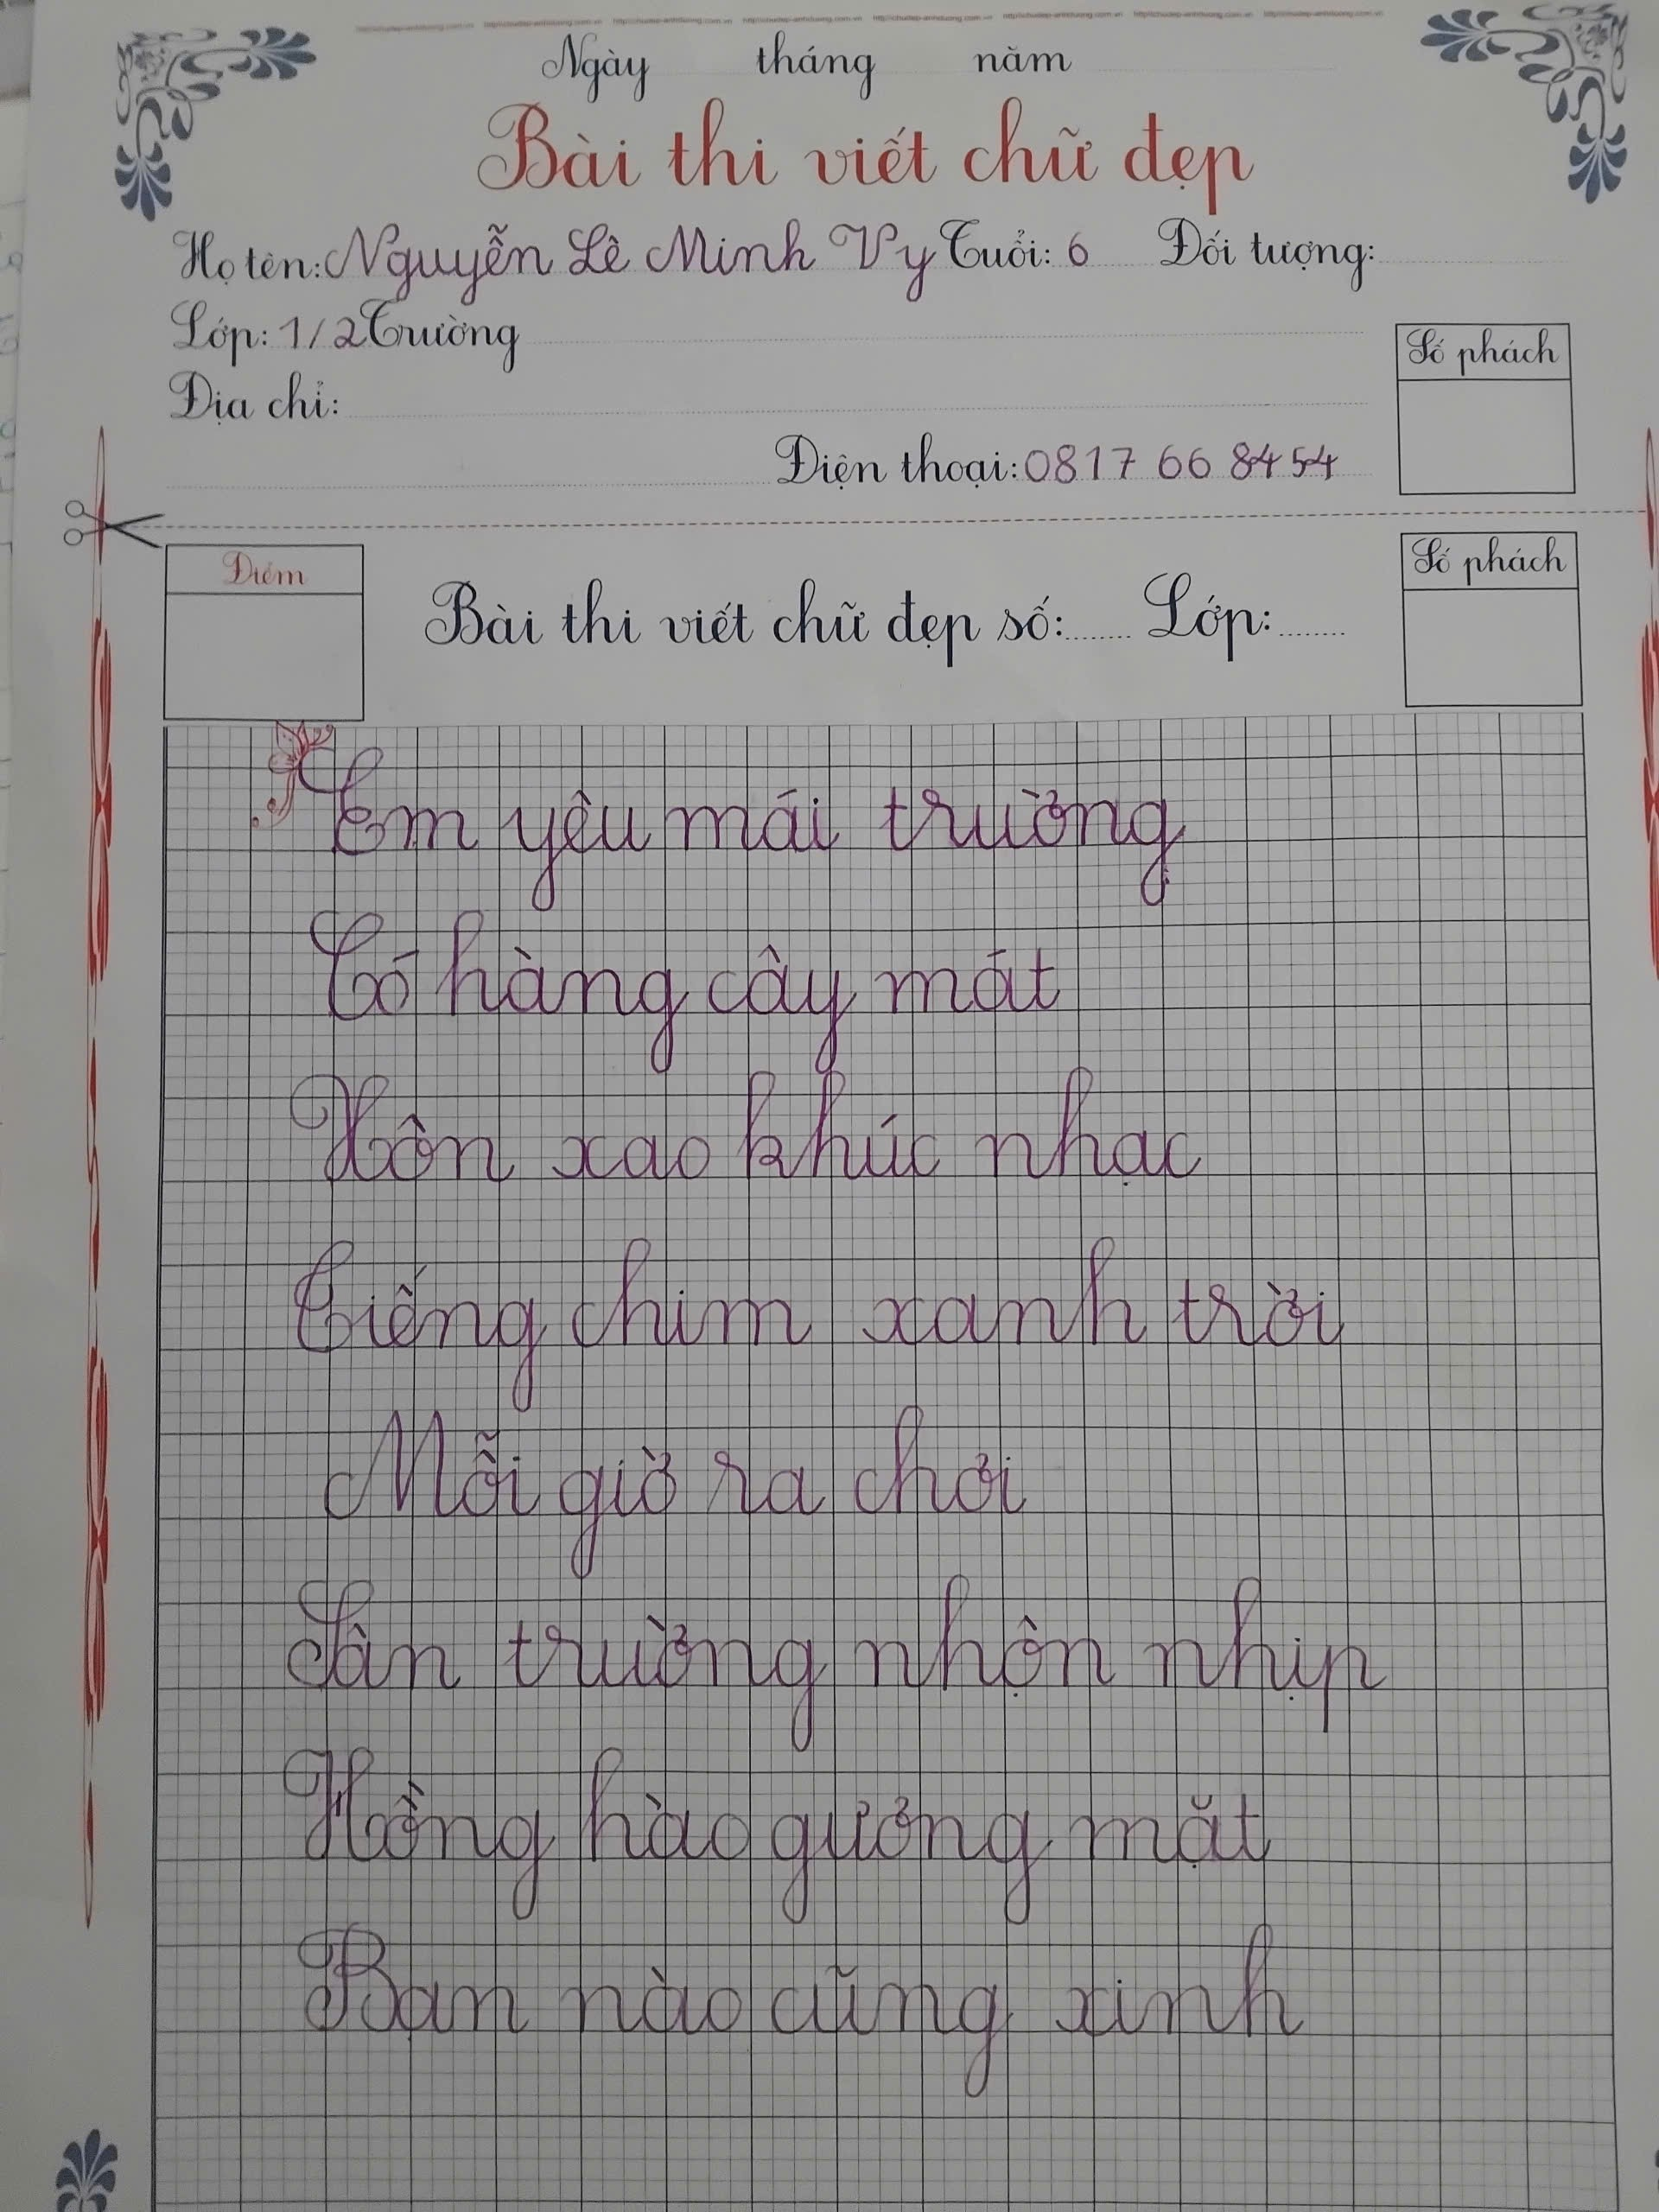 Ngày tháng năm
Bài thi viết chữ đẹp
Họ tên: Nguyễn Lê Minh Vy Tuổi: 6 Đối tượng:
Lớp: 1/2 Trường
Số phách
Địa chỉ:
Điện thoại: 0817 66 8454
Điểm
Số phách
Bài thi viết chữ đẹp số:....... Lớp:........
Em yêu mái trường
Có hàng cây mát
Xôn xao khúc nhạc
Tiếng chim xanh trời
Mỗi giờ ra chơi
Sân trường nhộn nhịp
Hồng hào gương mặt
Bạn nào cũng xinh